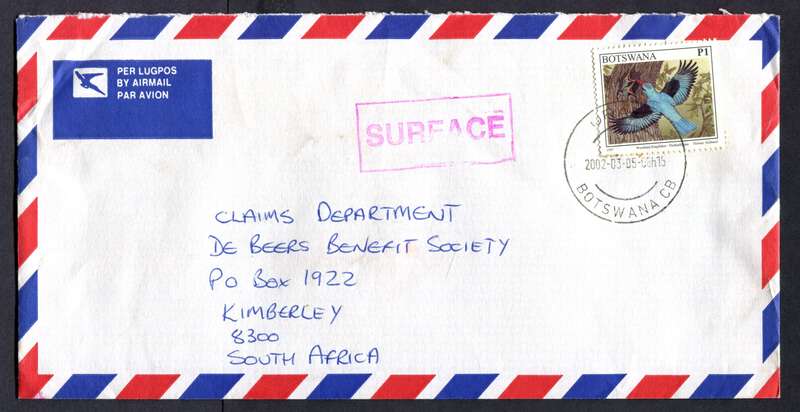 PER LUGPOS
BY AIRMAIL
PAR AVION
SURFACE
BOTSWANA P1
2002-03-05-
BOTSWANA CB
CLAIMS DEPARTMENT
DE BEERS BENEFIT SOCIETY
PO BOX 1922
KIMBERLEY
8300
SOUTH AFRICA